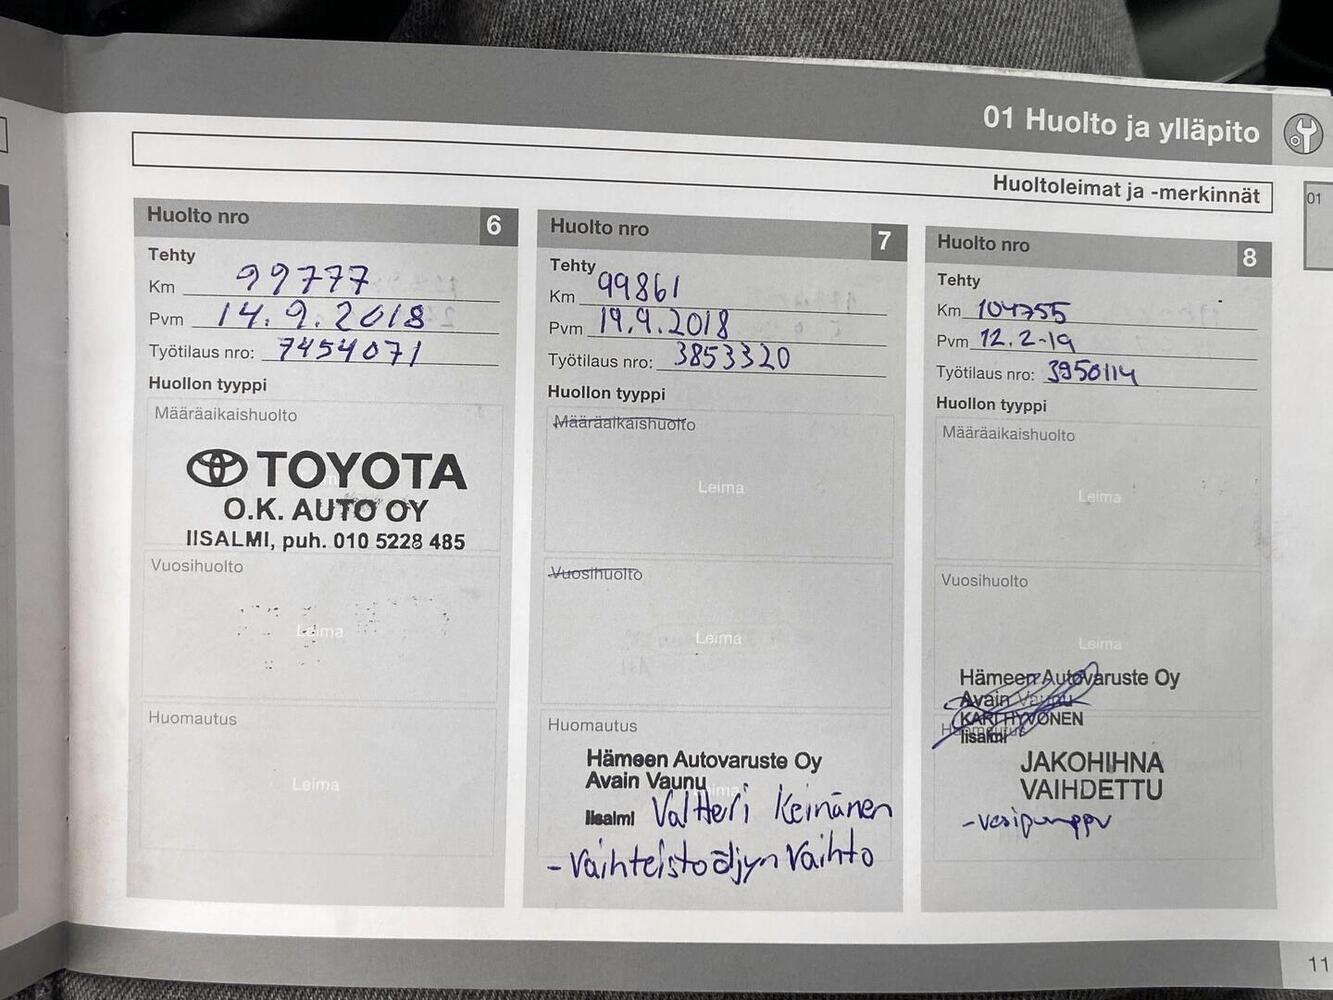 01 Huolto ja ylläpito
Huoltoleimat ja -merkinnät
01
Huolto nro 6
Tehty
Km 99777
Pvm 14.9.2018
Työtilaus nro: 7454071
Huollon tyyppi
Määräaikaishuolto
TOYOTA
O.K. AUTO OY
IISALMI, puh. 010 5228 485
Vuosihuolto
Leima
Huomautus
Leima
Huolto nro 7
Tehty
Km 99861
Pvm 19.9.2018
Työtilaus nro: 3853320
Huollon tyyppi
Määräaikaishuolto
Leima
Vuosihuolto
Leima
Huomautus
Hämeen Autovaruste Oy
Avain Vaunu
Iisalmi Valtteri Keinänen
- Vaihteistoöljyn vaihto
Huolto nro 8
Tehty
Km 104755
Pvm 12.2-19
Työtilaus nro: 3950114
Huollon tyyppi
Määräaikaishuolto
Leima
Vuosihuolto
Leima
Hämeen Autovaruste Oy
Avain Vaunu
KARI HYVÖNEN
Huomautus
Iisalmi
JAKOHIHNA
VAIHDETTU
- vesipumppu
11